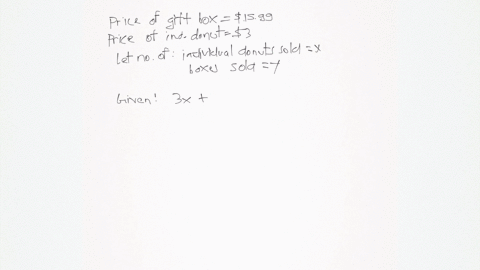 Price of gift box = $15.99
Price of ind. donut = $3
Let no. of: individual donuts sold = x
boxes sold = y
Given: 3x +